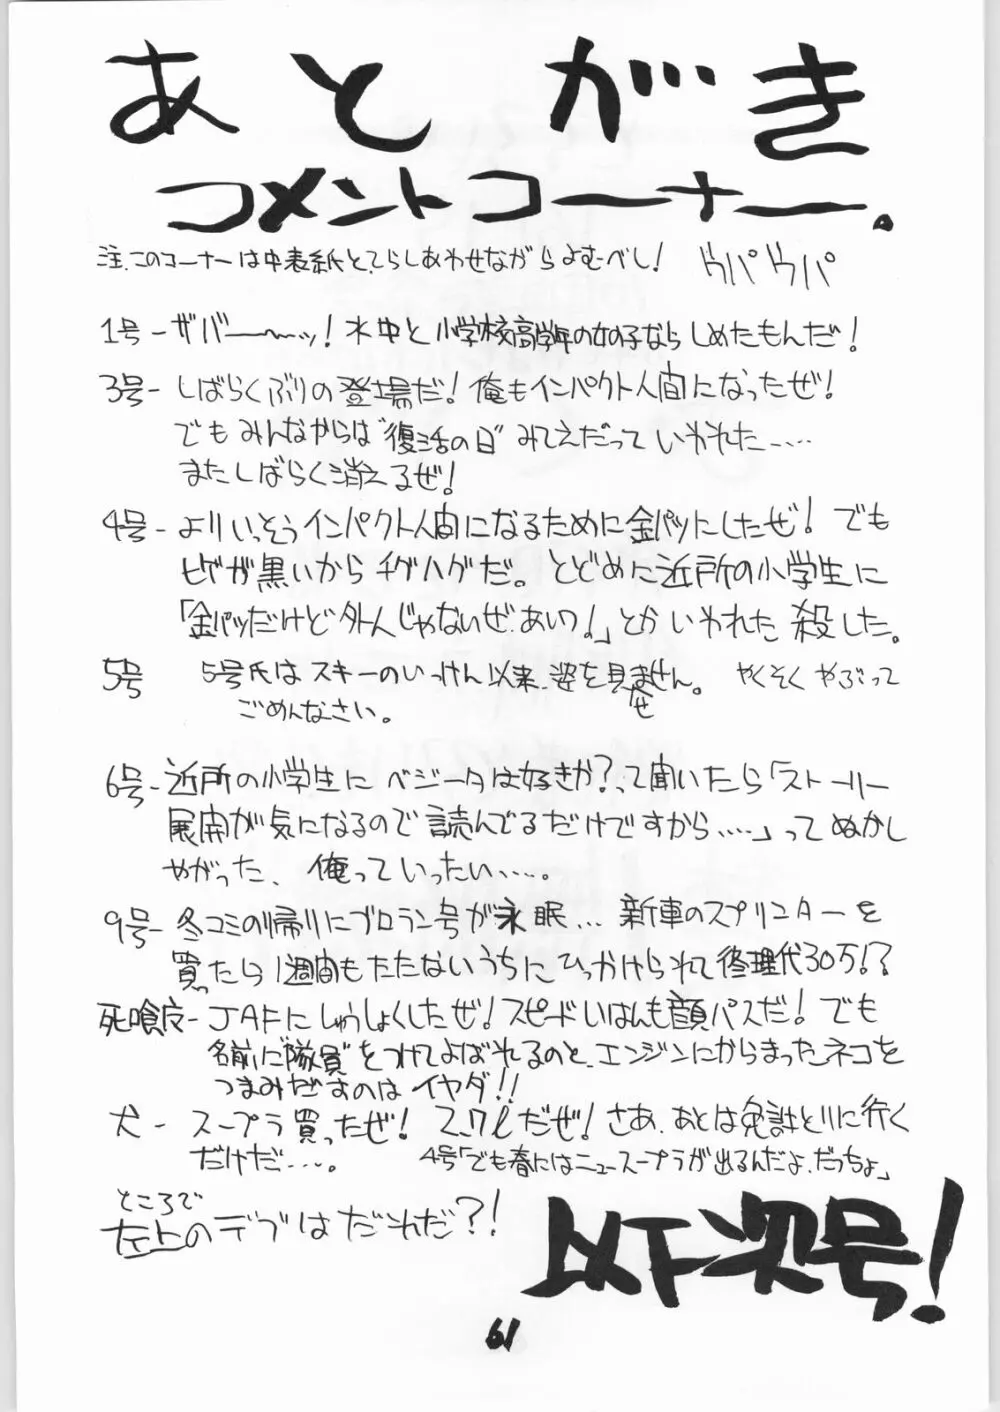 あとがき
コメントコーナー。
注.このコーナーは中表紙と、てらしあわせながらよむべし! ウパウパ
1号-ザバーーッ!水中と小学校高学年の女の子ならしめたもんだ!
3号-しばらくぶりの登場だ!俺もインパクト人間になったぜ!
でもみんなからは"復活の日"みてえだっていわれた……
またしばらく消えるぜ!
4号-よりいっそうインパクト人間になるために金パツにしたぜ!でも
ヒゲが黒いからチグハグだ。とどめに近所の小学生に
「金パツだけど外人じゃないぜ、あいつ!」とかいわれた 殺した。
5号 5号氏はスキーのいっけん以来、姿を見ません。 やくそくやぶって
ごめんなさい。
6号-近所の小学生にベジータは好きか?って聞いたら「ストーリー
展開が気になるので読んでるだけですから……」ってぬかし
やがった、俺っていったい……。
9号-冬コミの帰りにブロラン号が永眠… 新車のスプリンターを
買ったら1週間もたたないうちにひっかけられて修理代30万!?
死喰皮-JAFにしゅうしょくしたぜ!スピードいはんも顔パスだ!でも
名前に"隊員"をつけてよばれるのと、エンジンにからまったネコを
つまみだすのはイヤダ!!
犬-スープラ買ったぜ!2.7ℓだぜ!さあ、あとは免許とりに行く
だけだ……。 4号「でも春にはニュースープラが出るんだよ、だっちょ」
ところで
左上のデブはだれだ?!
以下次号!
61